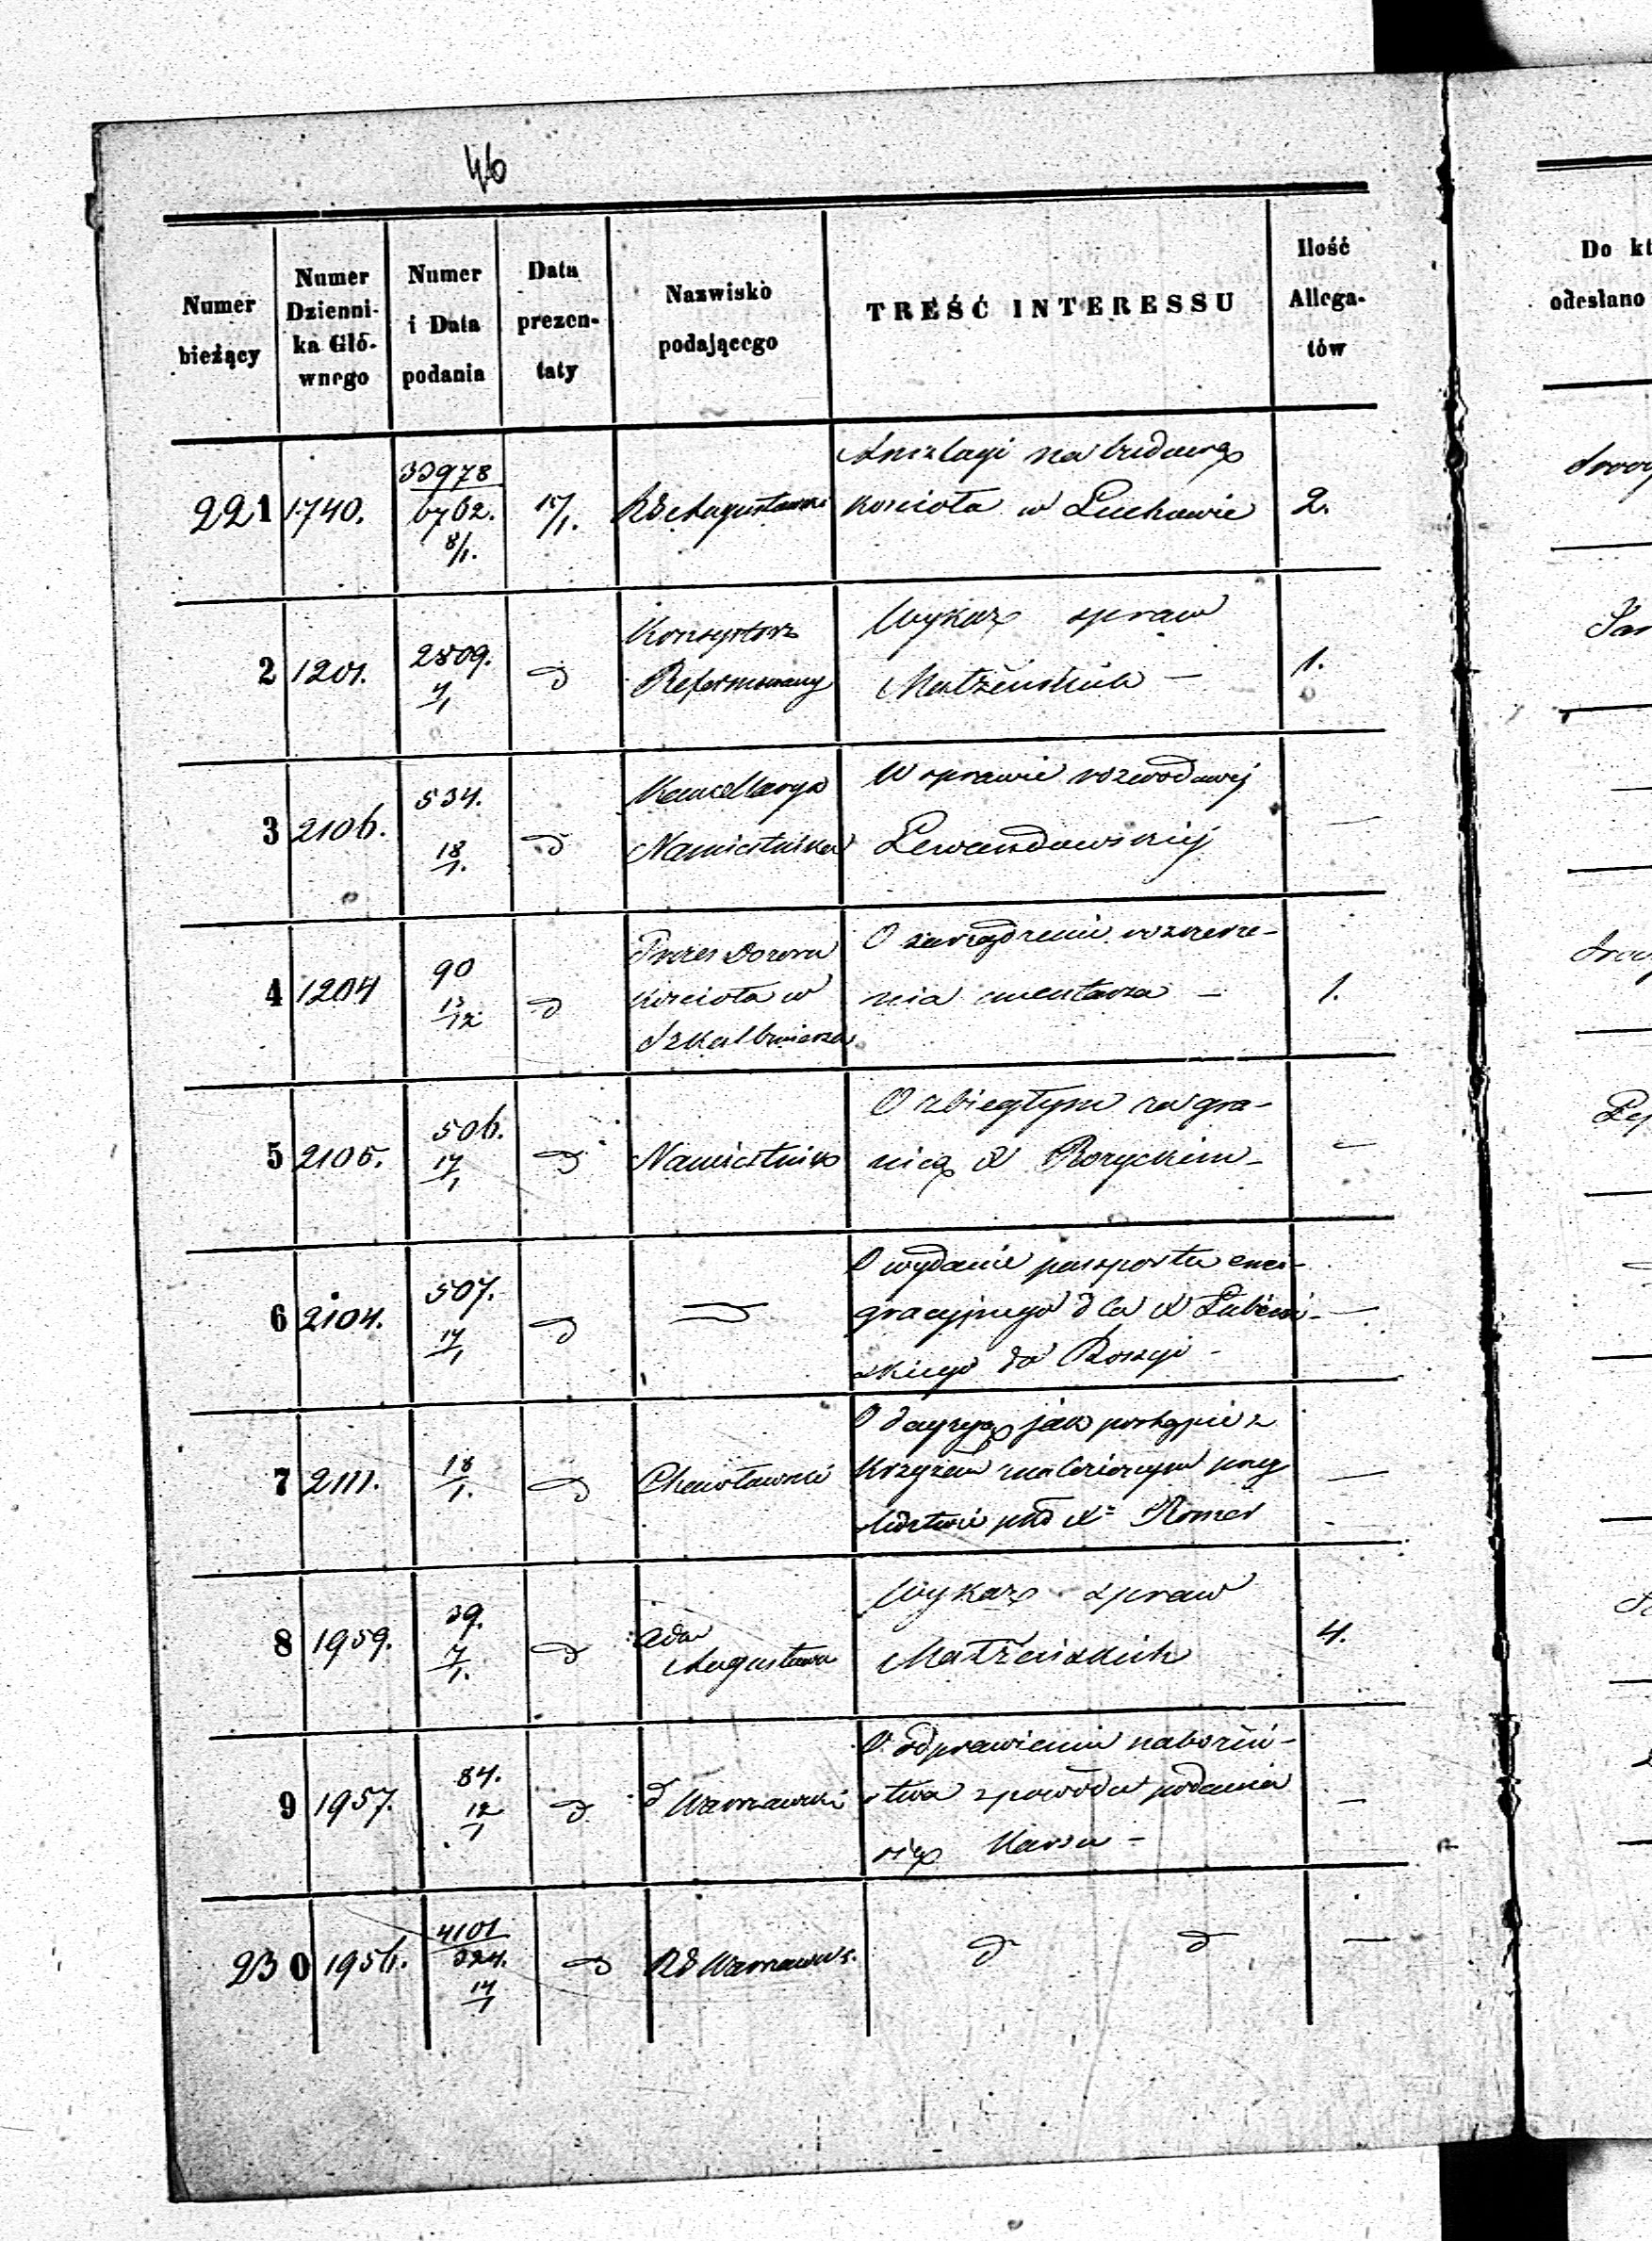 46
Numer bieżący
Numer Dzienni- ka Głó- wnego
Numer i Data podania
Data prezen- taty
Nazwisko podającego
TREŚĆ INTERESSU
Ilość Allega- tów
Do kt
odesłano
221 1740. 33978 6762. 8/1. 15/1. RG Augustowski
Anszlagi na budowę
kościoła w Łuchowie 2.
2 1201. 2809. 4/1 d
Konsystorz
Reformowany
Wykaz spraw
Małżeńskich — 1.
3 2106. 534. 18/1. d
Kancellarya
Namiestnika
W sprawie rozwodowej
Lewandowskiej —
4 1204 90 13/12 d
Prezes Dozoru
Kościoła w
Szkalbmierzu
O zarządzenie rozszerze-
nia cmentarza — 1.
5 2105. 506. 17/1 d Namiestnik
O zbiegłym za gra-
nicę X Rozyckim —
6 2104. 507. 17/1 d
O wydanie paszportu emi-
gracyjnego dla X
skiego do Rossyi —
7 2111. 18/1. d
O decyzyę jak postąpić z
Krzyżem znalezionym przy
śledztwie pko X Romer
8 1959. 39. 7/1. d
Adm
Augustowa
Wykaz spraw
Małżeńskich 4.
9 1957. 84. 12/1 d
d Warszawski
O odprawieniu nabożeń-
stwa z powodu poddania
się Karsu —
230 1956. 4101 324. 14/1 d RG Warszaws. d d —